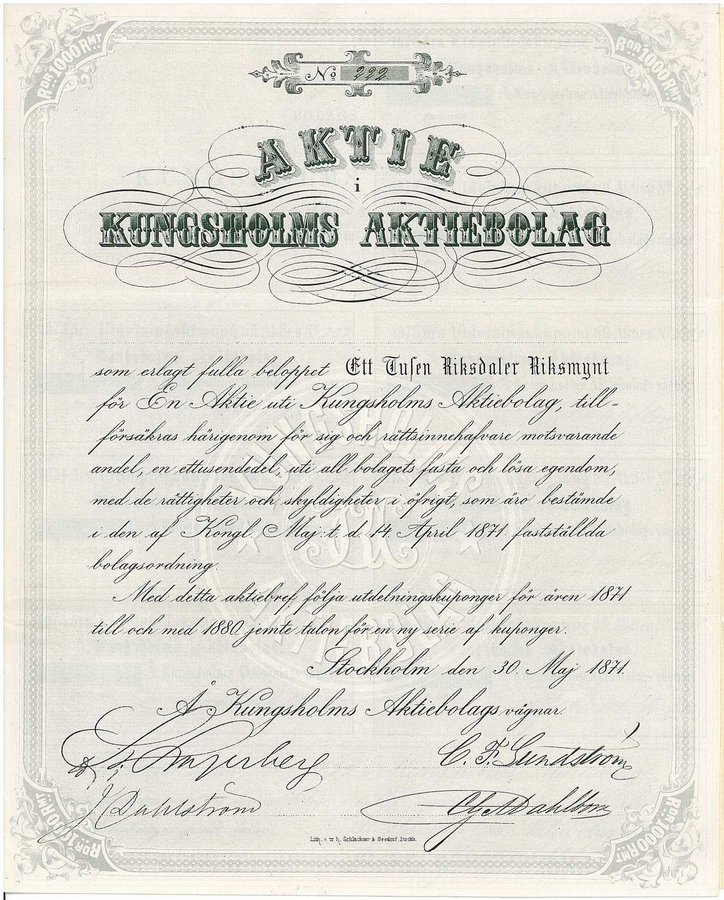 RDR 1000 RMT
RDR 1000 RMT
No 222
AKTIE
i
KUNGSHOLMS AKTIEBOLAG
som erlagt fulla beloppet Ett Tusen Riksdaler Riksmynt
för En Aktie uti Kungsholms Aktiebolag, till-
försäkras härigenom för sig och rättsinnehafvare motsvarande
andel, en ettusendedel, uti all bolagets fasta och lösa egendom,
med de rättigheter och skyldigheter i öfrigt, som äro bestämde
i den af Kongl. Maj:t d. 14 April 1871 fastställda
bolagsordning.
Med detta aktiebref följa utdelningskuponger för åren 1871
till och med 1880 jemte talon för en ny serie af kuponger.
Stockholm den 30 Maj 1871.
Å Kungsholms Aktiebolags vägnar.
C. F. Lundström
J Dahlström
Dahlbom
Lith. o. tr. h. Schlachter & Seedorf, Stockh.
RDR 1000 RMT
RDR 1000 RMT